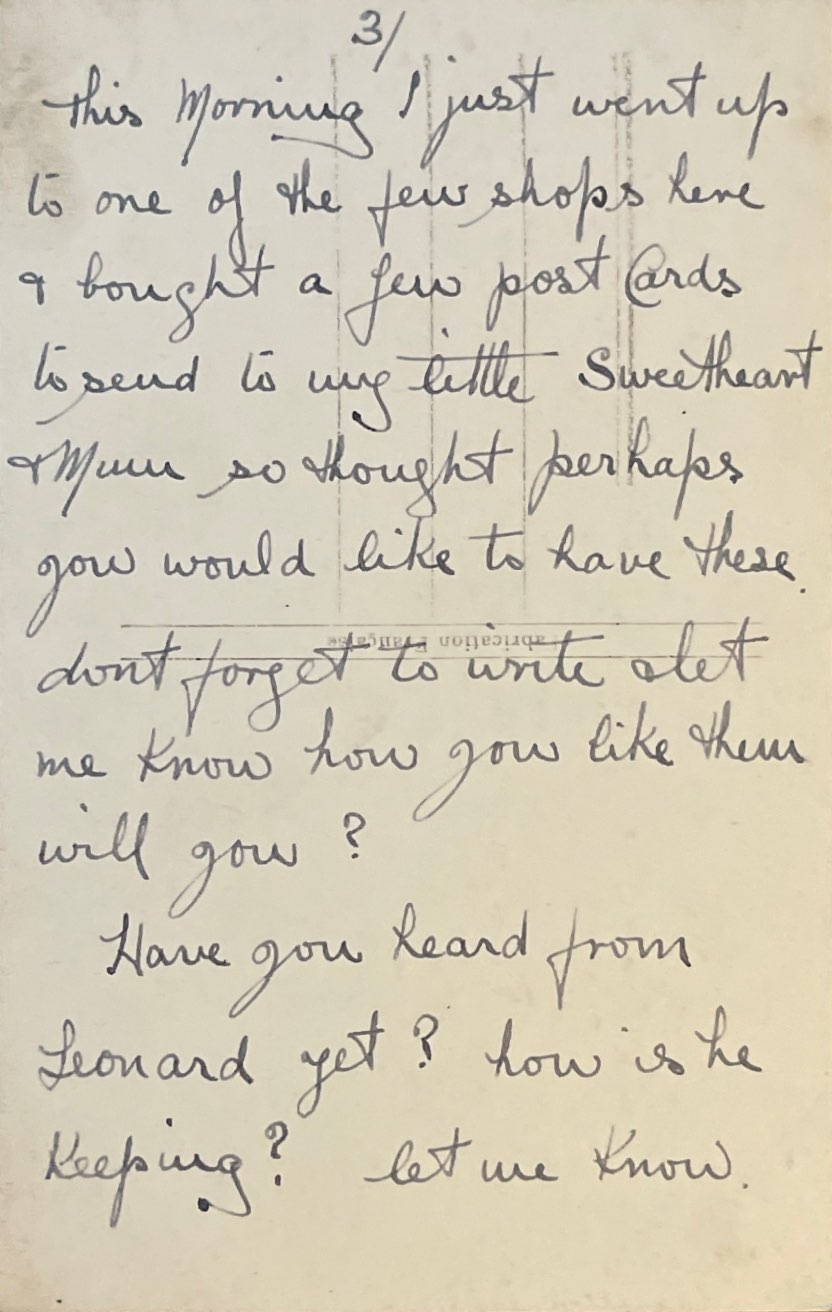 3/
this Morning I just went up
to one of the few shops here
& bought a few post Cards
to send to my little Sweetheart
& Mum so thought perhaps
you would like to have these.
Fabrication Française
dont forget to write & let
me know how you like them
will you ?
Have you heard from
Leonard yet ? how is he
Keeping ? let me Know.